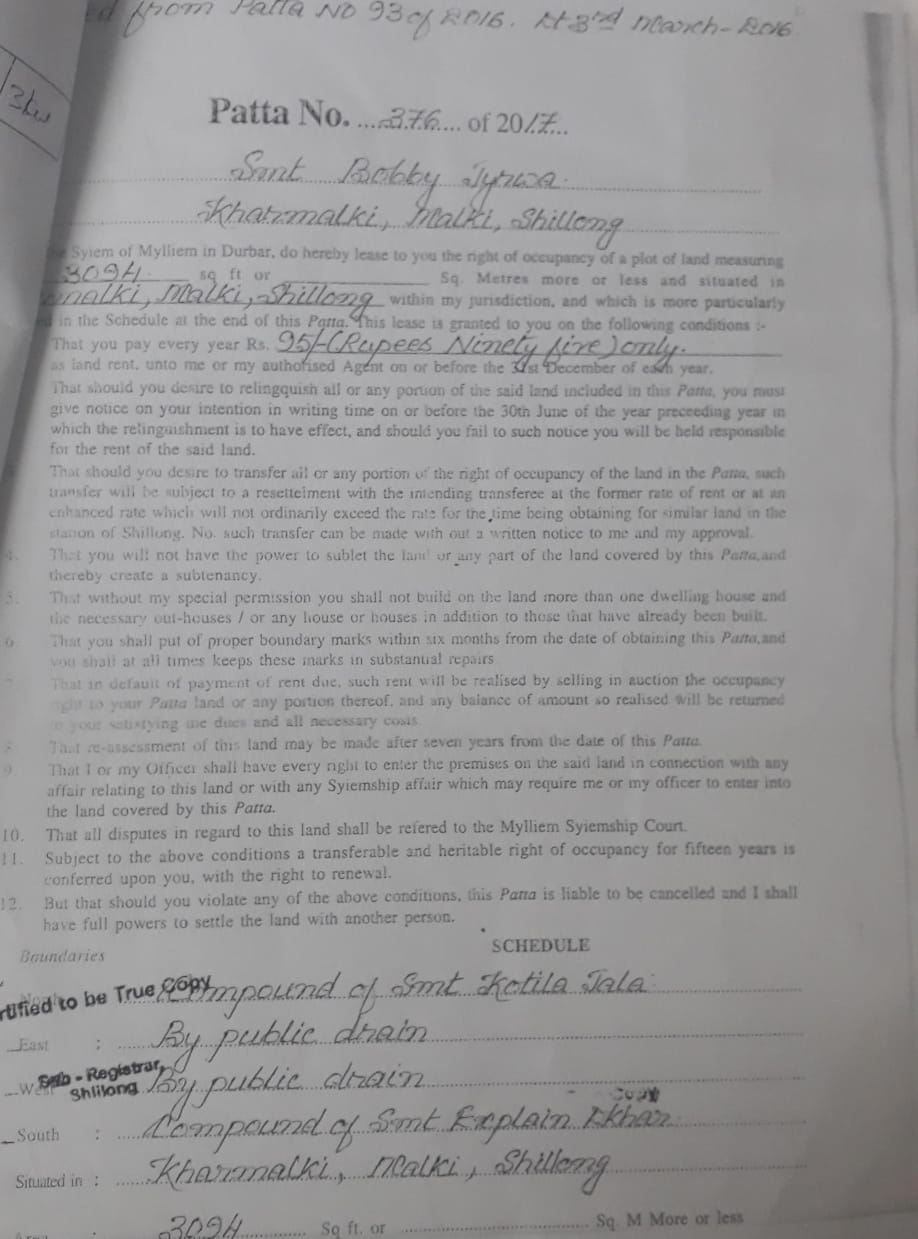 ed from Patta NO 93 of 2016. Dt 3rd March-2016
Patta No. ....376.... of 2017..
Smt Bobby Tynwa
Kharmalki, Malki, Shillong
the Syiem of Mylliem in Durbar, do hereby lease to you the right of occupancy of a plot of land measuring
3094 sq ft or ________ Sq. Metres more or less and situated in
malki, Malki, Shillong within my jurisdiction, and which is more particularly
in the Schedule at the end of this Patta. This lease is granted to you on the following conditions :-
That you pay every year Rs. 95/-(Rupees Ninety five) only.
as land rent, unto me or my authorised Agent on or before the 31st December of each year.
That should you desire to relingquish all or any portion of the said land included in this Patta, you must
give notice on your intention in writing time on or before the 30th June of the year preceeding year in
which the relinguishment is to have effect, and should you fail to such notice you will be held responsible
for the rent of the said land.
3. That should you desire to transfer all or any portion of the right of occupancy of the land in the Patta, such
transfer will be subject to a resettelment with the intending transferee at the former rate of rent or at an
enhanced rate which will not ordinarily exceed the rate for the time being obtaining for similar land in the
station of Shillong. No. such transfer can be made with out a written notice to me and my approval.
4. That you will not have the power to sublet the land or any part of the land covered by this Patta, and
thereby create a subtenancy.
5. That without my special permission you shall not build on the land more than one dwelling house and
the necessary out-houses / or any house or houses in addition to those that have already been built.
6. That you shall put of proper boundary marks within six months from the date of obtaining this Patta, and
you shall at all times keeps these marks in substantial repairs
7. That in default of payment of rent due, such rent will be realised by selling in auction the occupancy
right to your Patta land or any portion thereof, and any balance of amount so realised will be returned
to your satistying the dues and all necessary costs.
8. That re-assessment of this land may be made after seven years from the date of this Patta.
9 That I or my Officer shall have every right to enter the premises on the said land in connection with any
affair relating to this land or with any Syiemship affair which may require me or my officer to enter into
the land covered by this Patta.
10. That all disputes in regard to this land shall be refered to the Mylliem Syiemship Court.
11. Subject to the above conditions a transferable and heritable right of occupancy for fifteen years is
conferred upon you, with the right to renewal.
12. But that should you violate any of the above conditions, this Patta is liable to be cancelled and I shall
have full powers to settle the land with another person.
SCHEDULE
Boundaries
rtified to be True Copy
Compound of Smt Kotila Tala
East : By public drain
Sub - Registrar,
Shillong
West By public drain
Copy
South : Compound of Smt Explain Kkhar
Situated in : Kharmalki, Malki, Shillong
3094 Sq ft. or ........ Sq. M More or less